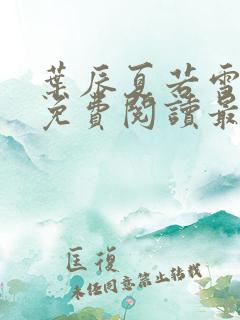 葉辰夏若雪
免費閱讀最
匡復
未經同意禁止轉載